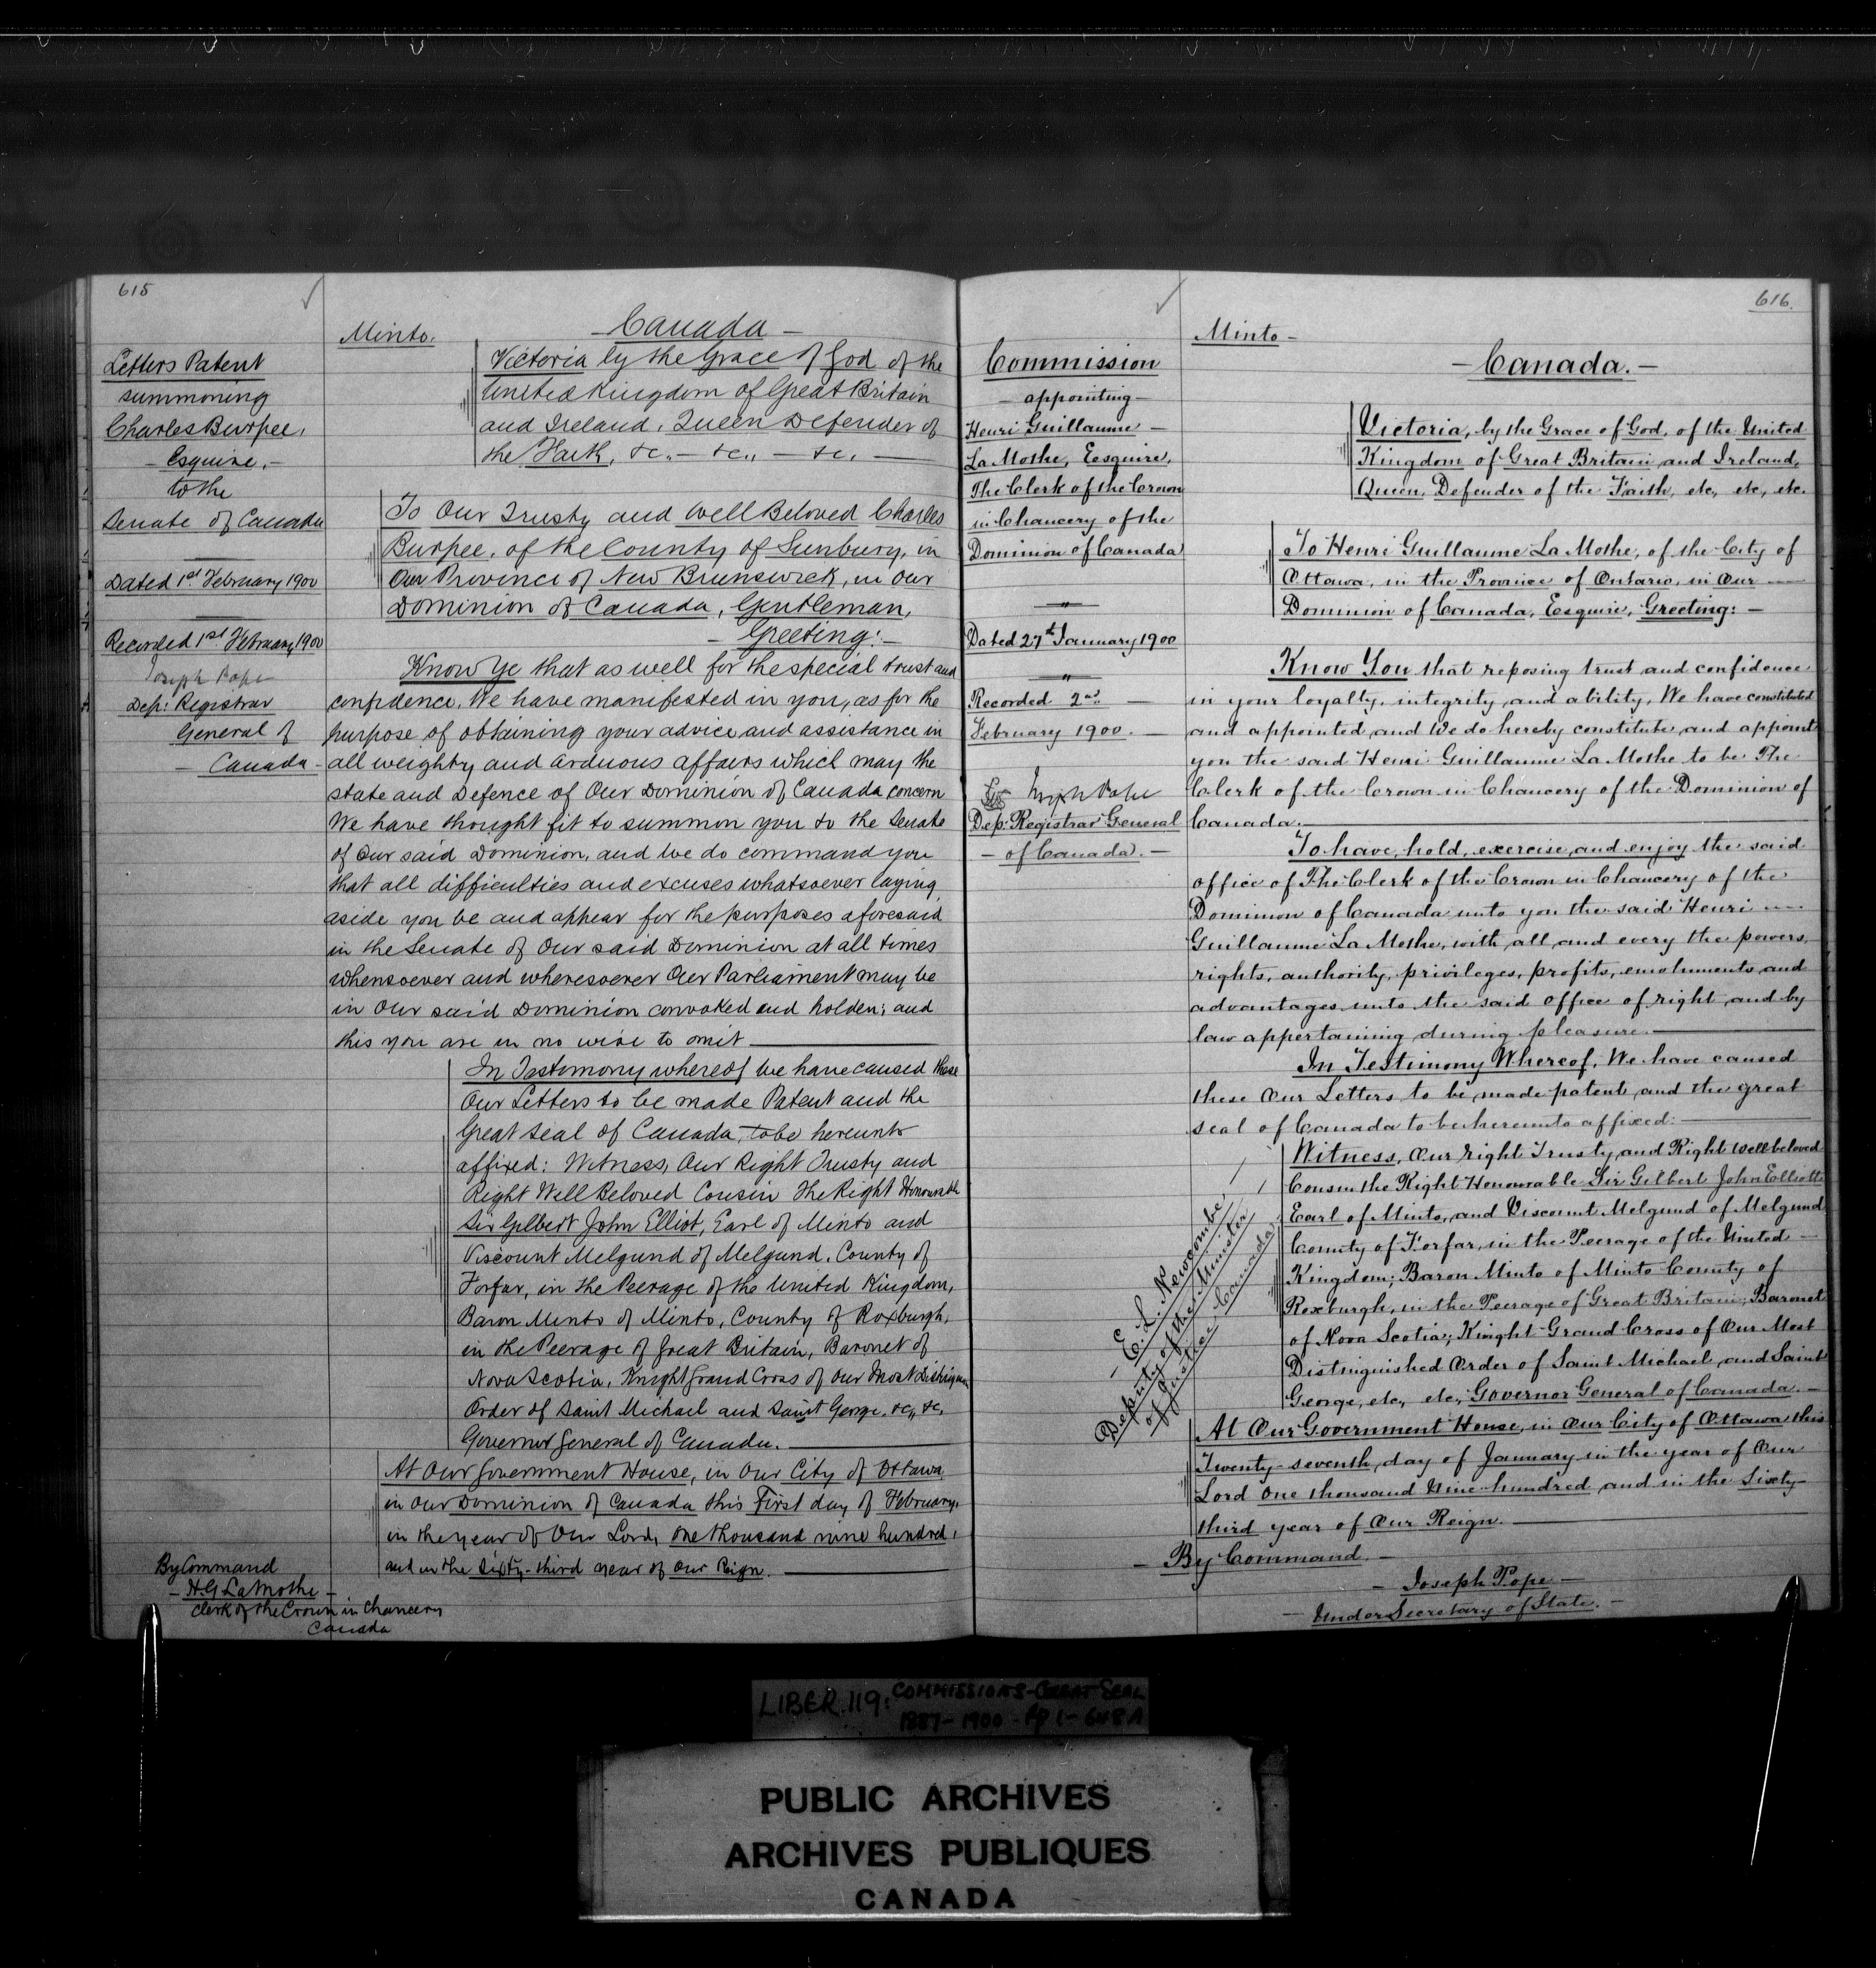 615
Letters Patent
summoning
Charles Burpee,
- Esquire, -
to the
Senate of Canada
Dated 1st February 1900
Recorded 1st February, 1900
Joseph Pope
Dep: Registrar
General of
- Canada -
Minto.
- Canada -
Victoria by the Grace of God of the
United Kingdom of Great Britain
and Ireland, Queen Defender of
the Faith, &c, - &c, - &c, -
To Our Trusty and Well Beloved Charles
Burpee, of the County of Sunbury, in
Our Province of New Brunswick, in Our
Dominion of Canada, Gentleman,
- Greeting: -
Know Ye that as well for the special trust and
confidence, We have manifested in you, as for the
purpose of obtaining your advice and assistance in
all weighty and arduous affairs which may the
state and Defence of Our Dominion of Canada concern
We have thought fit to summon you to the Senate
of Our said Dominion, and We do command you
that all difficulties and excuses whatsoever laying
aside you be and appear for the purposes aforesaid
in the Senate of Our said Dominion at all times
whensoever and wheresoever Our Parliament may be
in Our said Dominion convoked and holden; and
this you are in no wise to omit
In Testimony whereof We have caused these
Our Letters to be made Patent and the
Great Seal of Canada, to be hereunto
affixed: Witness, Our Right Trusty and
Right Well Beloved Cousin The Right Honourable
Sir Gilbert John Elliot, Earl of Minto and
Viscount Melgund of Melgund, County of
Forfar, in the Peerage of the United Kingdom,
Baron Minto of Minto, County of Roxburgh,
in the Peerage of Great Britain, Baronet of
Nova Scotia, Knight Grand Cross of Our Most
Order of Saint Michael and Saint George, &c, &c,
Governor General of Canada.
At Our Government House, in Our City of Ottawa,
in Our Dominion of Canada this First day of February,
in the year of Our Lord, one thousand nine hundred,
and in the Sixty-third year of Our Reign.
By Command
- H G LaMothe -
Clerk of the Crown in Chancery
Canada
616.
Commission
- appointing -
Henri Guillaume -
La Mothe, Eesquire,
The Clerk of the Crown
in Chancery of the
Dominion of Canada
Dated 27th January 1900
Recorded 2nd -
February 1900. -
Joseph Pope
Dep: Registrar General
- of Canada. -
Minto -
- Canada. -
Victoria, by the Grace of God, of the United
Kingdom of Great Britain and Ireland,
Queen, Defender of the Faith, etc, etc, etc.
To Henri Guillaume La Mothe, of the City of
Ottawa, in the Province of Ontario, in Our
Dominion of Canada, Esquire, Greeting: -
Know You that reposing trust and confidence
in your loyalty, integrity, and ability, We have constituted
and appointed, and We do hereby constitute and appoint
you the said Henri Guillaume La Mothe to be The
Clerk of the Crown in Chancery of the Dominion of
Canada.
To have, hold, exercise, and enjoy the said
office of The Clerk of the Crown in Chancery of the
Dominion of Canada unto you the said Henri
Guillaume La Mothe, with all and every the powers,
rights, authority, privileges, profits, emoluments and
advantages unto the said office of right and by
law appertaining during pleasure.
In Testimony Whereof, We have caused
these Our Letters to be made patent, and the great
seal of Canada to be hereunto affixed:
Witness, Our right Trusty and Right Wellbeloved
Cousin the Right Honourable Sir Gilbert John Elliott
Earl of Minto, and Viscount Melgund of Melgund
County of Forfar, in the Peerage of the United -
Kingdom; Baron Minto of Minto County of
Roxburgh, in the Peerage of Great Britain; Baronet
of Nova Scotia; Knight Grand Cross of Our Most
Distinguished Order of Saint Michael and Saint
George, etc, etc, Governor General of Canada. -
- E. L. Newcombe,
Deputy of the Minister
of Justice, Canada
At Our Government House, in Our City of Ottawa this
Twenty-seventh day of January in the year of Our
Lord One thousand Nine hundred, and in the Sixty-
third year of Our Reign.
- By Command. -
- Joseph Pope -
- Under Secretary of State. -
LIBER. 119: COMMISSIONS - GREAT SEAL
1887 - 1900 - Pp 1 - 648A
PUBLIC ARCHIVES
ARCHIVES PUBLIQUES
CANADA